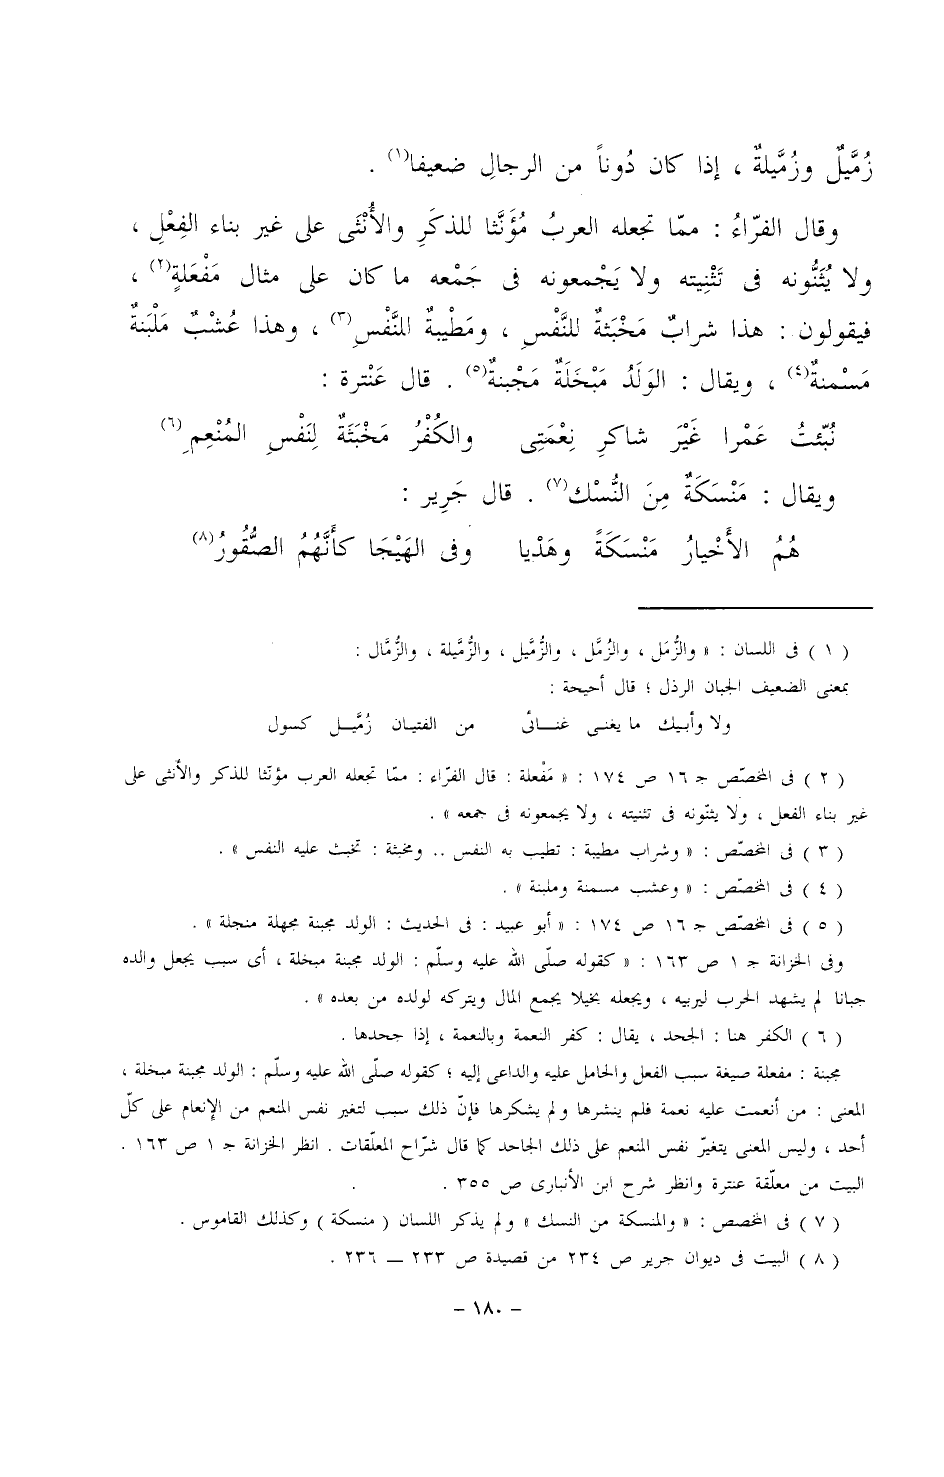 زُمَّيلٌ وزُمَّيلةٌ ، إذا كان دُوناً من الرجالِ ضعيفا(١) .
وقال الفرّاءُ : ممّا تجعله العربُ مُؤَنَّثا للذكَرِ والأُنْثَى على غير بناء الفِعْلِ ،
ولا يُثَنُّونه فى تَثْنِيته ولا يَجْمعونه فى جَمْعه ما كان على مثال مَفْعَلةٍ(٢) ،
فيقولون : هذا شرابٌ مَخْبَثةٌ للنَّفْسِ ، ومَطْيبةٌ للنَّفْسِ(٣) ، وهذا عُشْبٌ مَلْبَنةٌ
مَسْمنةٌ(٤) ، ويقال : الوَلَدُ مَبْخَلَةٌ مَجْبنةٌ(٥) . قال عَنْترة :
نُبّئتُ عَمْرا غَيْرَ شاكرِ نِعْمَتِى والكُفْرُ مَخْبَثَةٌ لِنَفْسِ المُنْعِمِ(٦)
ويقال : مَنْسَكَةٌ مِنَ النُّسْك(٧) . قال جَرِير :
هُمُ الأَخْيارُ مَنْسَكَةً وهَدْيا وفى الهَيْجَا كأَنَّهُمُ الصُّقُورُ(٨)
( ١ ) فى اللسان : « والزُّمَل ، والزُمَّل ، والزُّمَّيل ، والزُّمَّيلة ، والزُّمَّال :
بمعنى الضعيف الجبان الرذل ؛ قال أحيحة :
ولا وأبيك ما يغنى غنـائى من الفتيان زُمَّيل كسول
( ٢ ) فى المخصّص جـ ١٦ ص ١٧٤ : « مَفْعلة : قال الفرّاء : ممّا تجعله العرب مؤنّثا للذكر والأنثى على
غير بناء الفعل ، ولا يثنّونه فى تثنيته ، ولا يجمعونه فى جمعه » .
( ٣ ) فى المخصّص : « وشراب مطيبة : تطيب به النفس .. ومخبثة : تخبث عليه النفس » .
( ٤ ) فى المخصّص : « وعشب مسمنة وملبنة » .
( ٥ ) فى المخصّص جـ ١٦ ص ١٧٤ : « أبو عبيد : فى الحديث : الولد مجبنة مجهلة منجلة » .
وفى الخزانة جـ ١ ص ١٦٣ : « كقوله صلّى الله عليه وسلّم : الولد مجبنة مبخلة ، أى سبب يجعل والده
جبانا لم يشهد الحرب ليربيه ، ويجعله بخيلا يجمع المال ويتركه لولده من بعده » .
( ٦ ) الكفر هنا : الجحد ، يقال : كفر النعمة وبالنعمة ، إذا جحدها .
مجبنة : مفعلة صيغة سبب الفعل والحامل عليه والداعى إليه ؛ كقوله صلّى الله عليه وسلّم : الولد مجبنة مبخلة ،
المعنى : من أنعمت عليه نعمة فلم ينشرها ولم يشكرها فإنّ ذلك سبب لتغير نفس المنعم من الإنعام على كلّ
أحد ، وليس المعنى يتغيّر نفس المنعم على ذلك الجاحد كما قال شرّاح المعلّقات . انظر الخزانة جـ ١ ص ١٦٣ .
البيت من معلّقة عنترة وانظر شرح ابن الأنبارى ص ٣٥٥ .
( ٧ ) فى المخصص : « والمنسكة من النسك » ولم يذكر اللسان ( منسكة ) وكذلك القاموس .
( ٨ ) البيت فى ديوان جرير ص ٢٣٤ من قصيدة ص ٢٣٣ ــ ٢٣٦ .
- ١٨٠ -